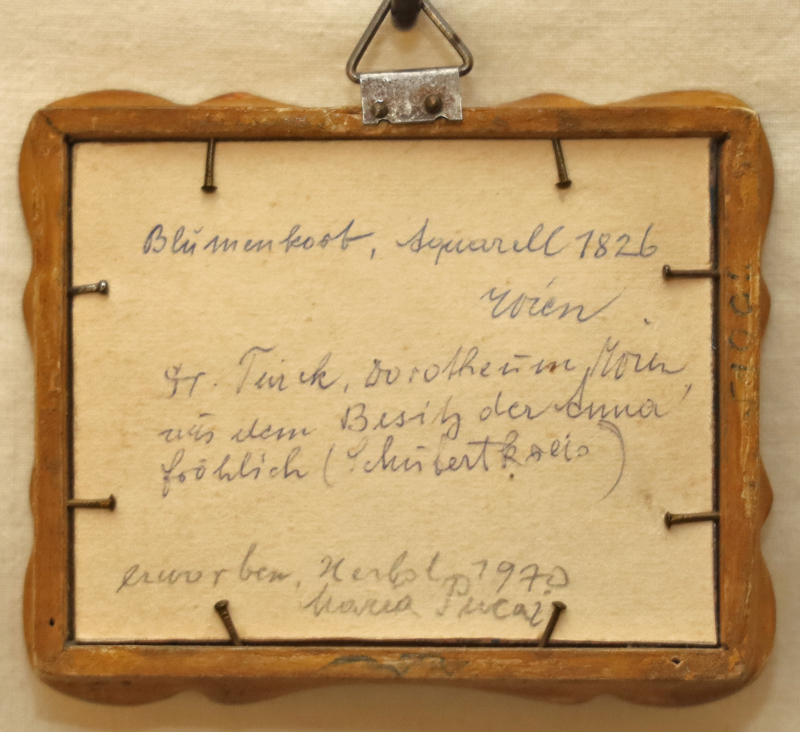 Blumenkorb, Aquarell 1826
Wien
Dorotheum, Wien,
aus dem Besitz der Anna
Fröhlich (Schubertkreis)
erworben, Herbst 1970
Maria